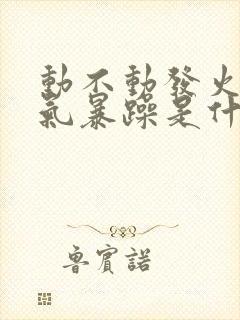 動不動發火
氣暴躁是什
魯賓諾